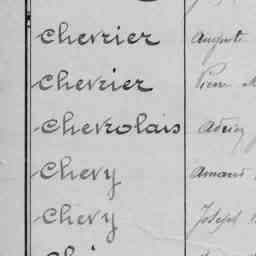 Chevrier Auguste
Chevrier Pierre M
Chevrolais
Chevy Amand
Chevy Joseph